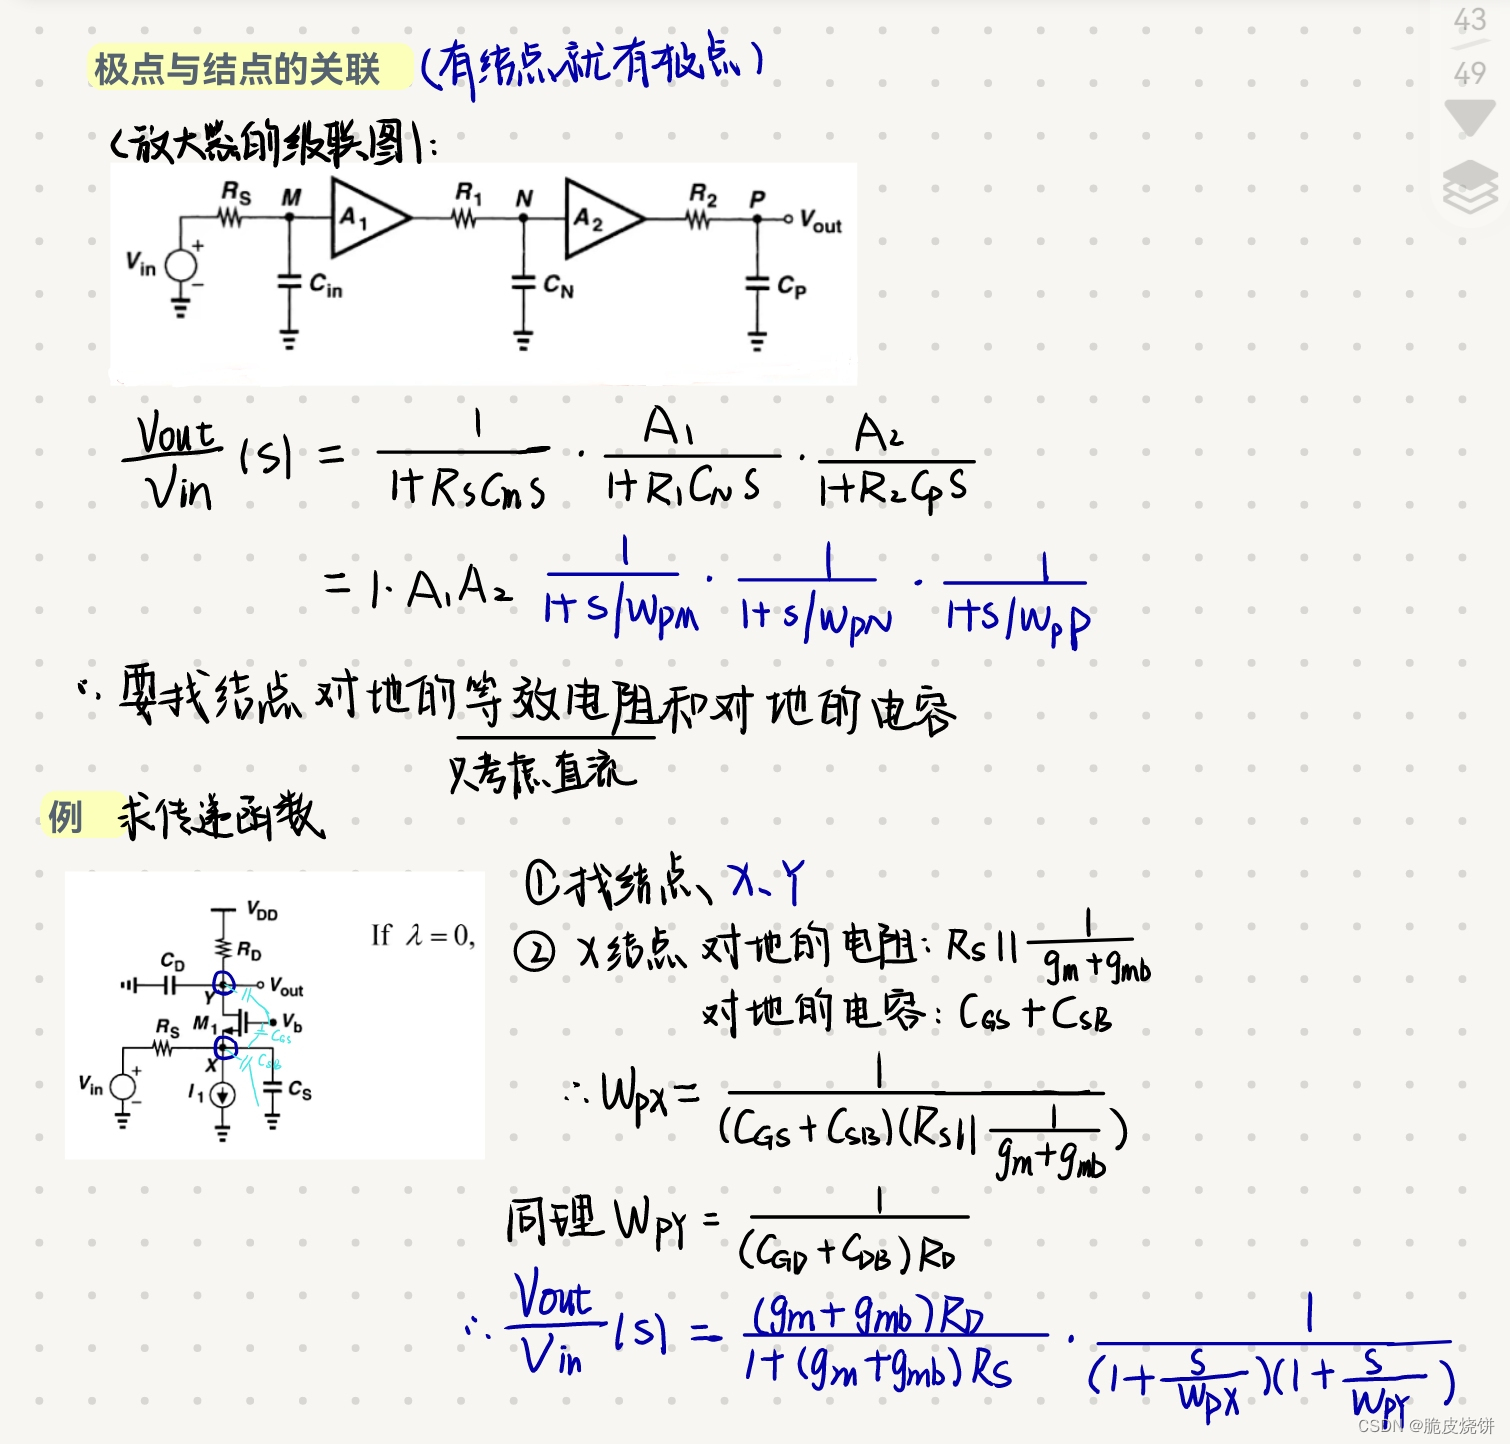 43
49
极点与结点的关联 (有结点就有极点)
(放大器的级联图):
RS M A1 R1 N A2 R2 P Vout
Vin + − Cin CN CP
Vout/Vin (s) = 1/(1+RSCinS) · A1/(1+R1CNS) · A2/(1+R2CpS)
= 1·A1A2 1/(1+s/WPM) · 1/(1+s/WPN) · 1/(1+s/WPP)
∵ 要找结点对地的等效电阻和对地的电容
只考虑直流
例 求传递函数
VDD
RD If λ = 0,
CD
Y Vout
RS M1 Vb
CGS
X CSB
Vin + − I1 CS
①找结点、X、Y
② X结点 对地的电阻: RS || 1/(gm+gmb)
对地的电容: CGS + CSB
∴ WPX = 1/((CGS + CSB)(RS || 1/(gm+gmb)))
同理 WPY = 1/((CGD + CDB)RD)
∴ Vout/Vin (s) = (gm+gmb)RD/(1+(gm+gmb)RS) · 1/((1+s/WPX)(1+s/WPY))
CSDN @脆皮烧饼